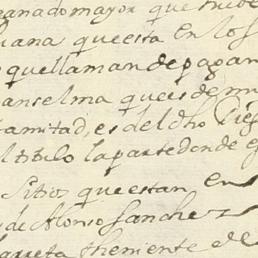 ganado mayor que hube
uana que esta en los
quellaman de pagan
anselma que es de mi
tamitad, es del dho Dieg
el titulo la parte donde es
Sitios que estan en
y de Alonso Sanchez
theniente de